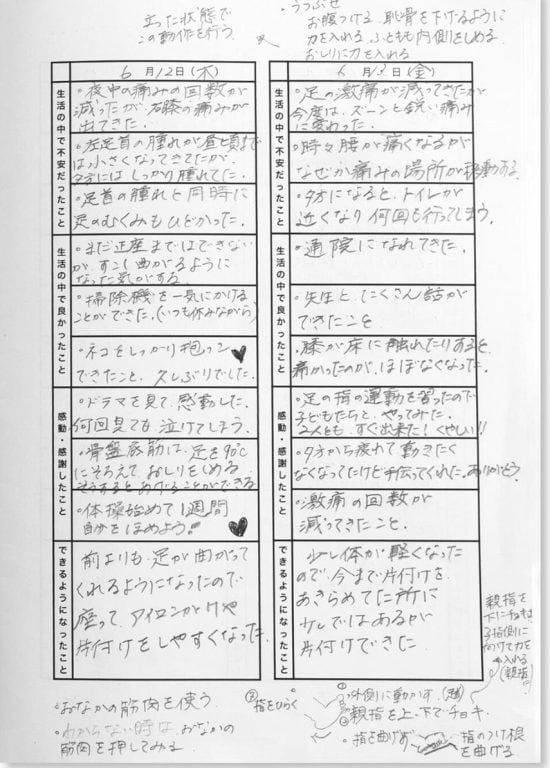 立った状態で
この動作を行う。
・うつぶせ
お腹つける。恥骨を下げるように
力を入れる。ふともも内側をしめる。
おしりに力を入れる
6月12日(木)
生活の中で不安だったこと
・夜中の痛みの回数が
減ったが、右膝の痛みが
出てきた。
・左足首の腫れが昼頃まで
は小さくなってきてたが、
夕方にはしっかり腫れてた。
・足首の腫れと同時に
足のむくみもひどかった。
生活の中で良かったこと
・まだ正座まではできない
が、すこし曲がるように
なった気がする。
・掃除機を一気にかける
ことができた。(いつも休みながら)
・ネコをしっかり抱っこ
できたこと、久しぶりでした。
感動・感謝したこと
・ドラマを見て、感動した。
何回見ても泣けてしまう。
・骨盤底筋は、足を90℃
にそろえておしりをしめる。
そうするとあげることができる
・体操始めて1週間
自分をほめよう!
できるようになったこと
前よりも、足が曲がって
くれるようになったので
座って、アイロンがけや
片付けをしやすくなった。
6月13日(金)
生活の中で不安だったこと
・足の激痛が減ってきたが
今度は、ズーンと鋭い痛み
に変わった。
・時々腰が痛くなるが
なぜか痛みの場所が移動する。
・夕方になると、トイレが
近くなり何回も行ってしまう。
生活の中で良かったこと
・通院になれてきた。
・先生と、たくさん話が
できたこと
・膝が床に触れたりすると、
痛かったのが、ほぼなくなった。
感動・感謝したこと
・足の指の運動を習ったので
子どもたちと、やってみた。
2人とも、すぐ出来た!くやしい!!
・夕方から疲れて動きたく
なくなってたけど手伝ってくれた。ありがとう。
・激痛の回数が
減ってきたこと。
できるようになったこと
少し体が軽くなった
ので、今まで片付けを
あきらめてた所に
少しではあるが
片付けできた
親指を
下に
子指側に
向けて力を
入れる
(親指)
・おなかの筋肉を使う
・わからない時は、おなかの
筋肉を押してみる
②指をひらく
①外側に動かす。
③親指を上・下でチョキ
・指を曲げず
指のつけ根
を曲げる。